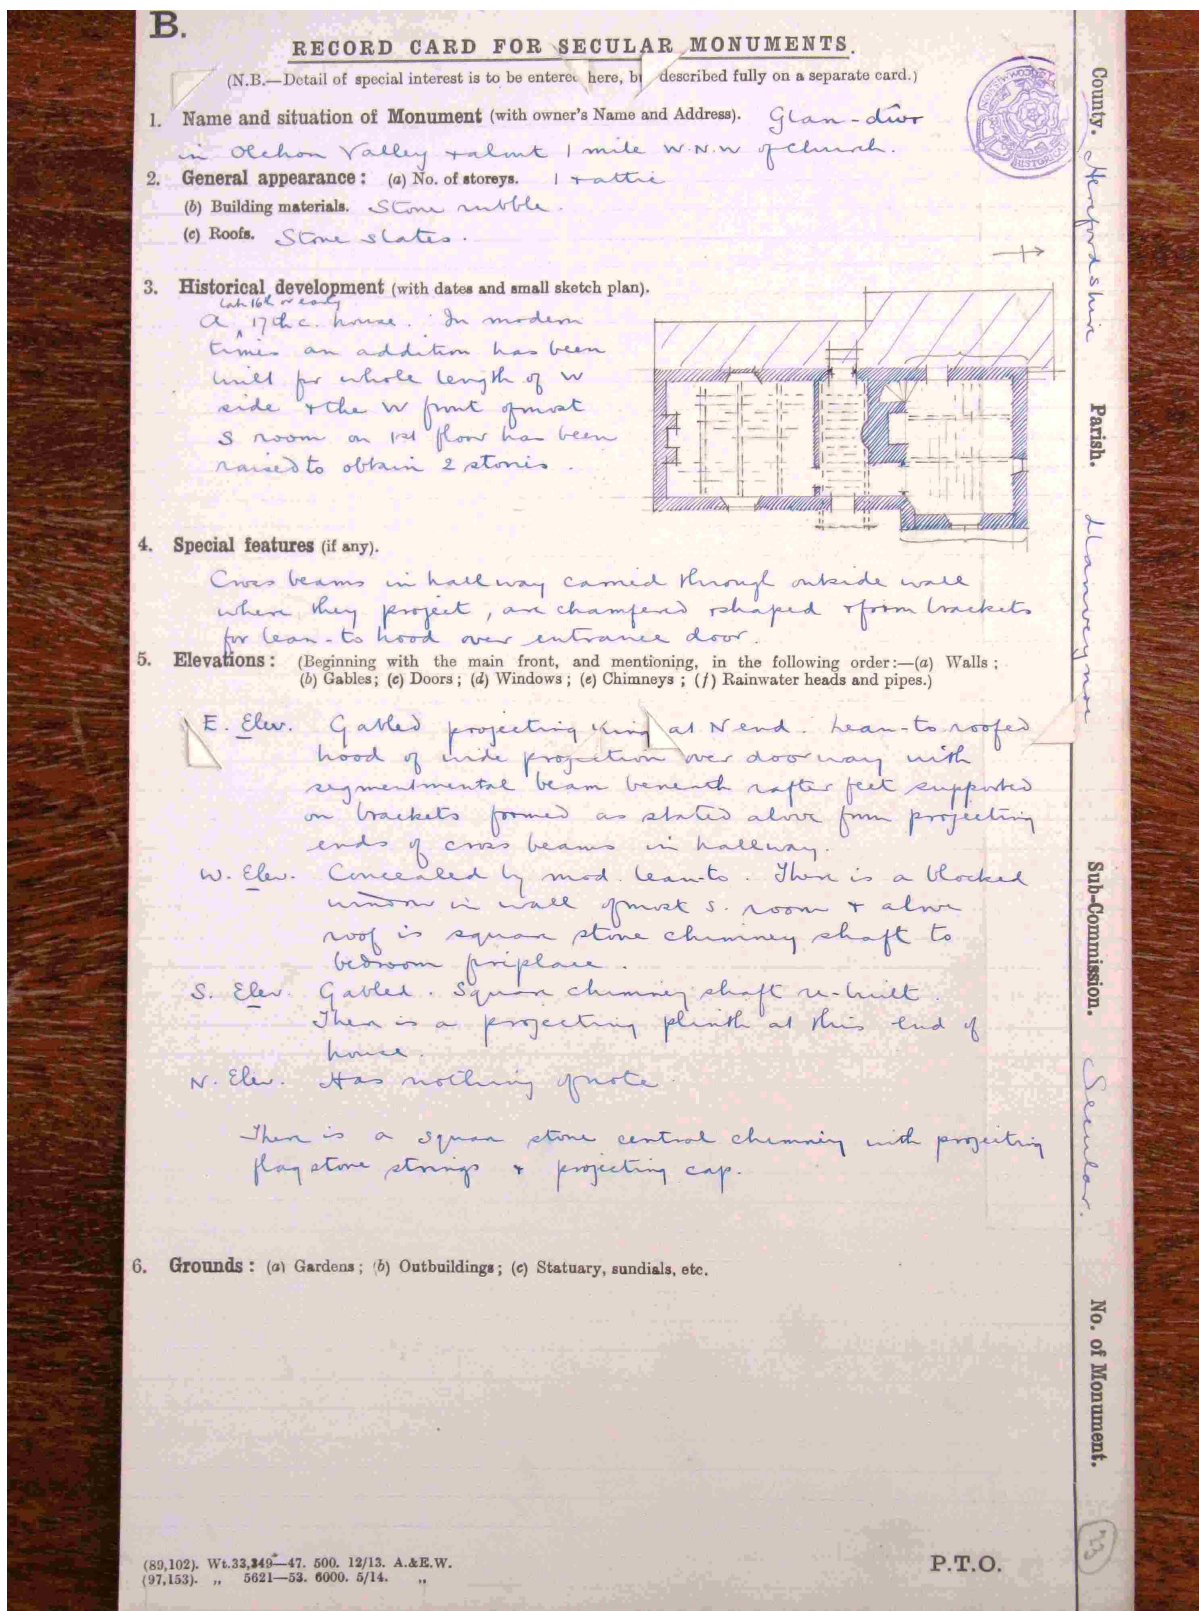 B.
RECORD CARD FOR SECULAR MONUMENTS.
(N.B.—Detail of special interest is to be entered here, b described fully on a separate card.)
1. Name and situation of Monument (with owner's Name and Address). Glan-dwr
in Olchon Valley & about 1 mile W.N.W of Church.
2. General appearance: (a) No. of storeys. 1 & attic
(b) Building materials. Stone rubble.
(c) Roofs. Stone slates.
3. Historical development (with dates and small sketch plan).
late 16th or early
A ^ 17th c. house. In modern
times an addition has been
built for whole length of W
side & the W front of most
S room on 1st floor has been
raised to obtain 2 stories.
4. Special features (if any).
Cross beams in hallway carried through outside wall
where they project, are chamfered & shaped & form brackets
for lean-to hood over entrance door.
5. Elevations: (Beginning with the main front, and mentioning, in the following order:—(a) Walls;
(b) Gables; (c) Doors; (d) Windows; (e) Chimneys; (f) Rainwater heads and pipes.)
E. Elev. Gabled projecting wing at N end. Lean-to roofed
hood of wide projection over doorway with
segmentmental beam beneath rafter feet supported
on brackets formed as stated above from projecting
ends of cross beams in hallway.
W. Elev. Concealed by mod. lean-to. There is a blocked
window in wall of most S. room & above
roof is square stone chimney shaft to
bedroom fireplace.
S. Elev. Gabled. Square chimney shaft re-built.
There is a projecting plinth at this end of
house.
N. Elev. Has nothing of note.
There is a square stone central chimney with projecting
flagstone strings & projecting cap.
6. Grounds: (a) Gardens; (b) Outbuildings; (c) Statuary, sundials, etc.
(89,102). Wt.33,349—47. 500. 12/13. A.&E.W.
(97,153). „ 5621—53. 6000. 5/14. „
P.T.O.
County. Herefordshire
Parish. Llanveynoe
Sub-Commission. Secular.
No. of Monument. 33